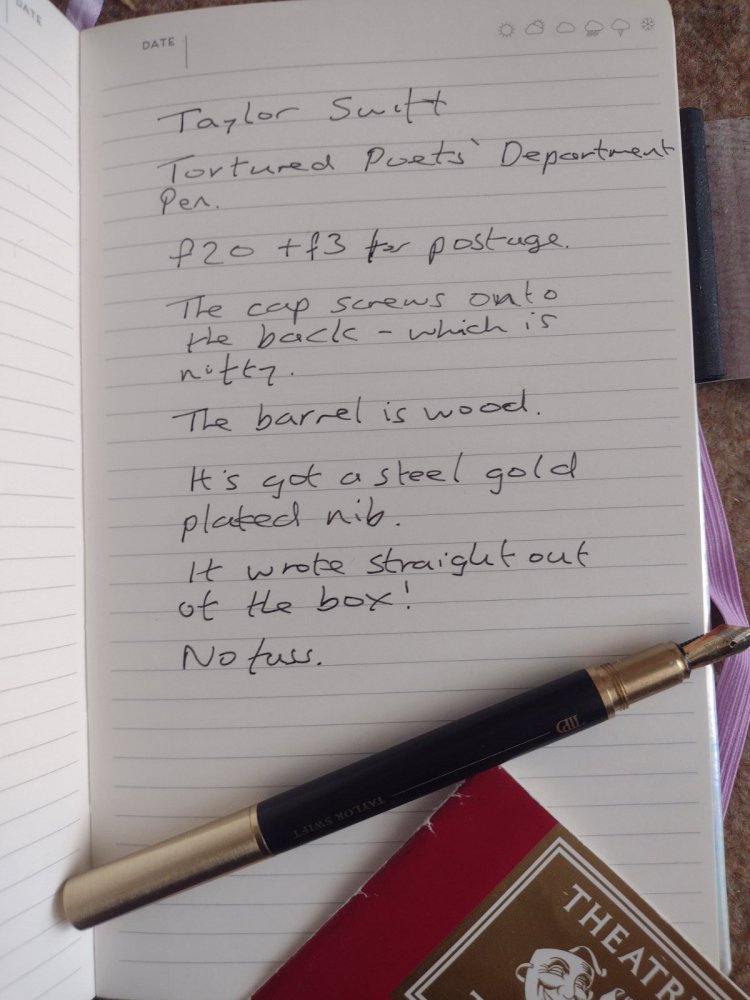 DATE
DATE
Taylor Swift
Tortured Poets' Department
Pen.
£20 + £3 for postage.
The cap screws onto
the back - which is
nifty.
The barrel is wood.
It's got a steel gold
plated nib.
It wrote straight out
of the box!
No fuss.
TAYLOR SWIFT
THEATR